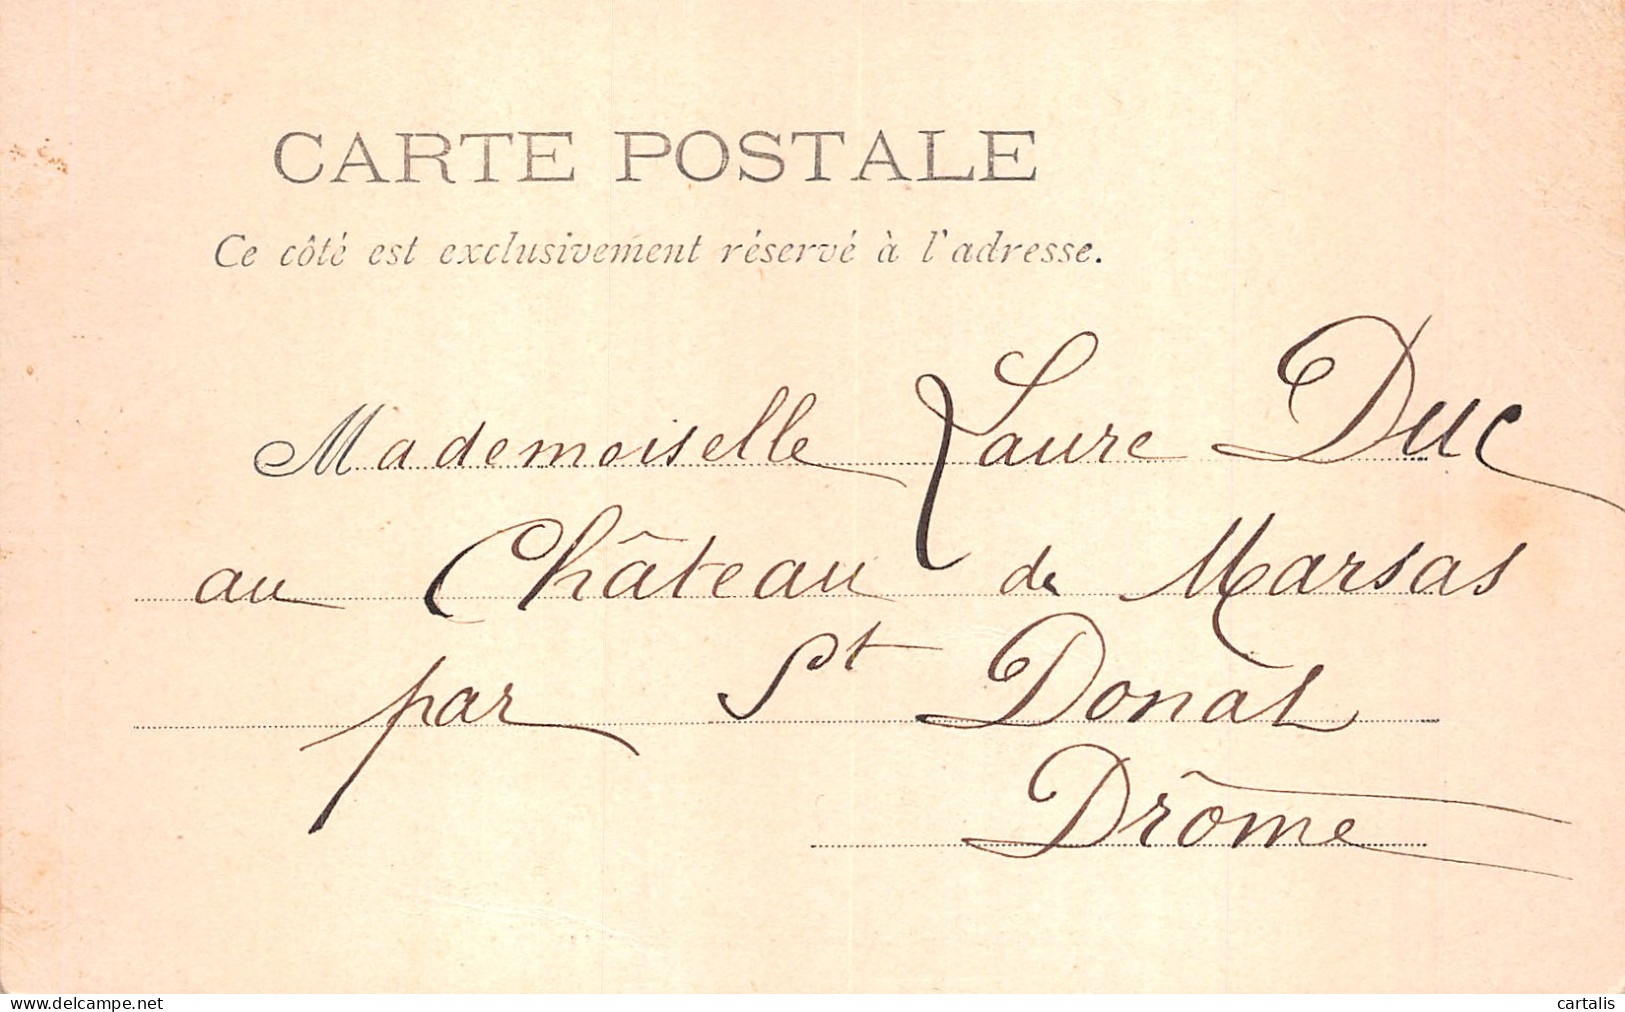 CARTE POSTALE
Ce côté est exclusivement réservé à l'adresse.
Mademoiselle Laure Duc
au Château de Marsas
par St Donat
Drôme
www.delcampe.net
cartalis